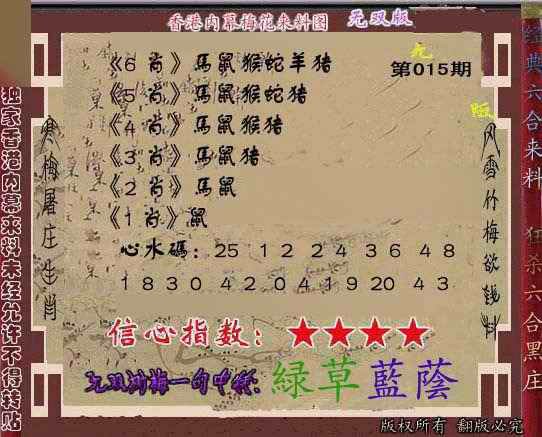 香港内幕梅花来料图 无双版
无
第015期
版
《6 肖》馬鼠猴蛇羊猪
《5 肖》馬鼠猴蛇猪
《4 肖》馬鼠猴猪
《3 肖》馬鼠猪
《2 肖》馬鼠
《1 肖》鼠
心水碼: 25 12 24 36 48
18 30 42 04 19 20 43
信心指数: ★★★★
无双浏梅一句中特: 緑草藍蔭
独家香港内幕来料未经允许不得转贴
寒梅屠庄生肖
风雪竹梅欲钱料
经典六合来料 狂杀六合黑庄
版权所有 翻版必究